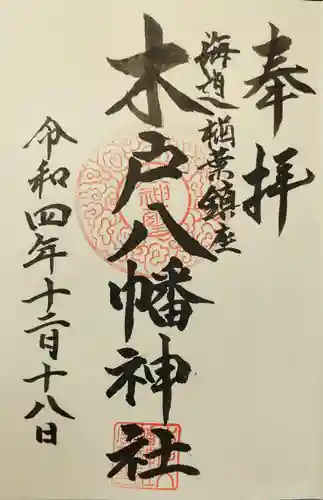 奉拝
海道楢葉鎮座
木戸八幡神社
令和四年十二月十八日